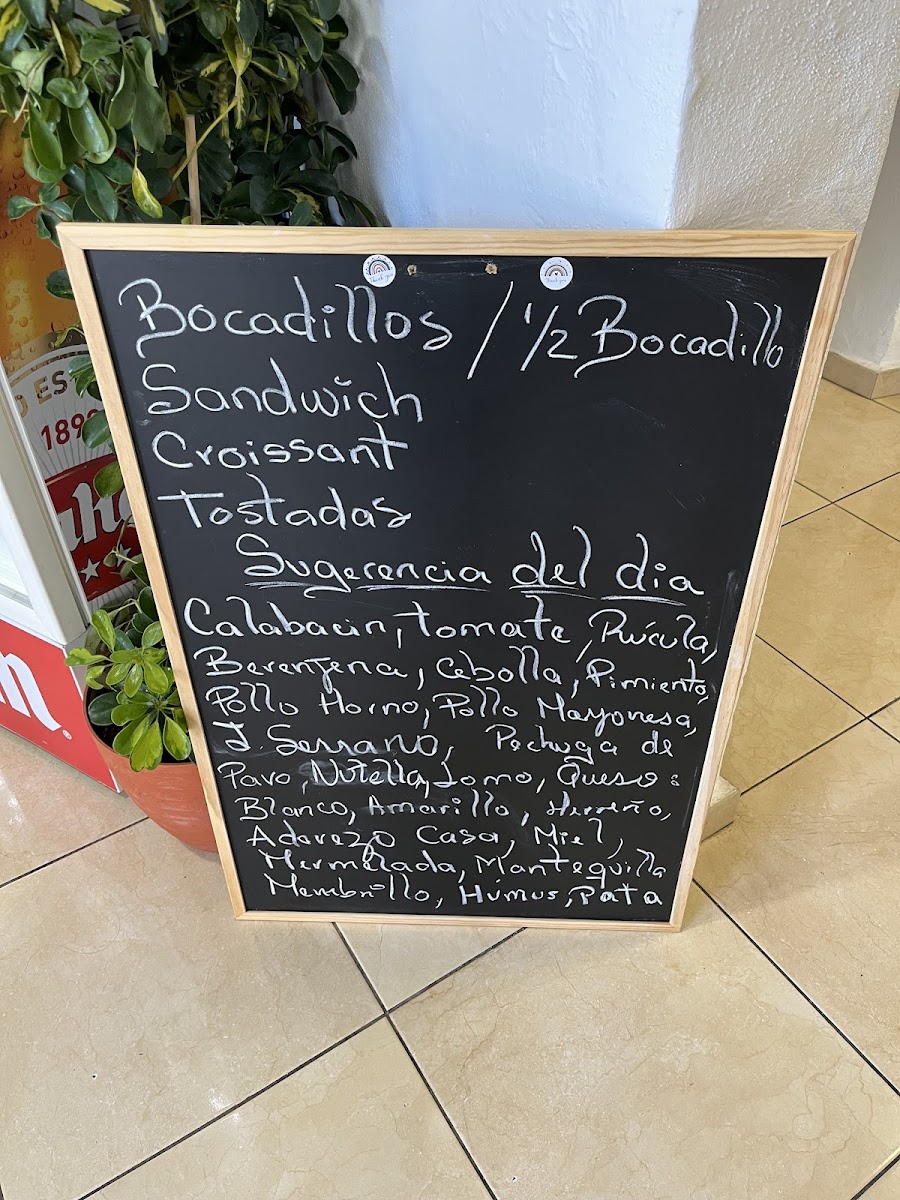 Thank you
Thank you
Bocadillos / 1/2 Bocadillo
Sandwich
Croissant
Tostadas
Sugerencia del dia
Calabacin, tomate, Rúcula,
Berenjena, Cebolla, Pimiento,
Pollo Horno, Pollo Mayonesa,
J. Serrano, Pechuga de
Pavo, Nutella, Lomo, Queso:
Blanco, Amarillo, Herreño,
Aderezo Casa, Miel,
Mermelada, Mantequilla
Membrillo, Húmus, Pata
1899